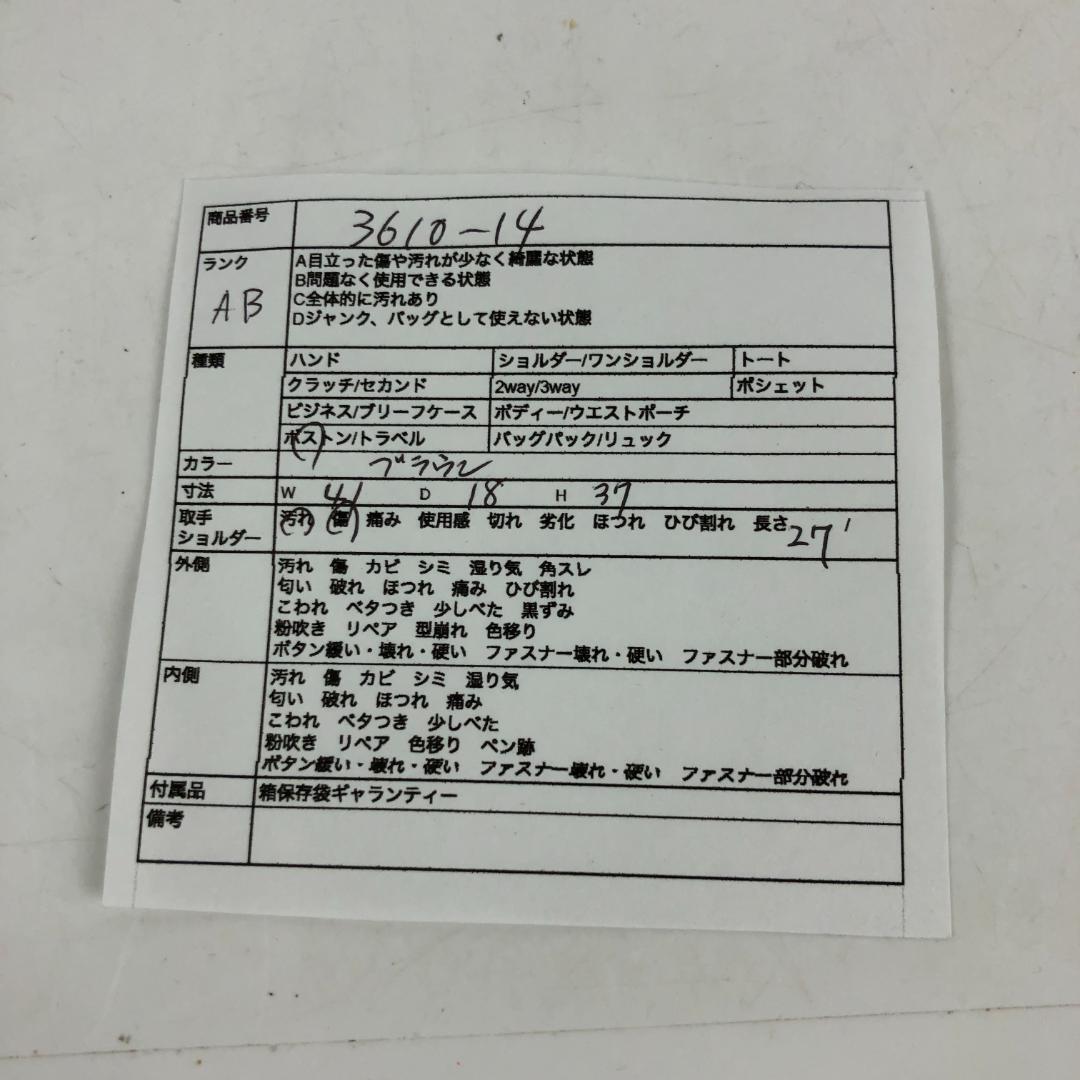 商品番号 3610-14
ランク AB
A目立った傷や汚れが少なく綺麗な状態
B問題なく使用できる状態
C全体的に汚れあり
Dジャンク、バッグとして使えない状態
種類 ハンド ショルダー/ワンショルダー トート
クラッチ/セカンド 2way/3way ポシェット
ビジネス/ブリーフケース ボディー/ウエストポーチ
ボストン/トラベル バッグパック/リュック
カラー ブラウン
寸法 W 41 D 18 H 37
取手 汚れ 傷 痛み 使用感 切れ 劣化 ほつれ ひび割れ 長さ 27
ショルダー
外側 汚れ 傷 カビ シミ 湿り気 角スレ
匂い 破れ ほつれ 痛み ひび割れ
こわれ ベタつき 少しべた 黒ずみ
粉吹き リペア 型崩れ 色移り
ボタン緩い・壊れ・硬い ファスナー壊れ・硬い ファスナー部分破れ
内側 汚れ 傷 カビ シミ 湿り気
匂い 破れ ほつれ 痛み
こわれ ベタつき 少しべた
粉吹き リペア 色移り ペン跡
ボタン緩い・壊れ・硬い ファスナー壊れ・硬い ファスナー部分破れ
付属品 箱保存袋ギャランティー
備考